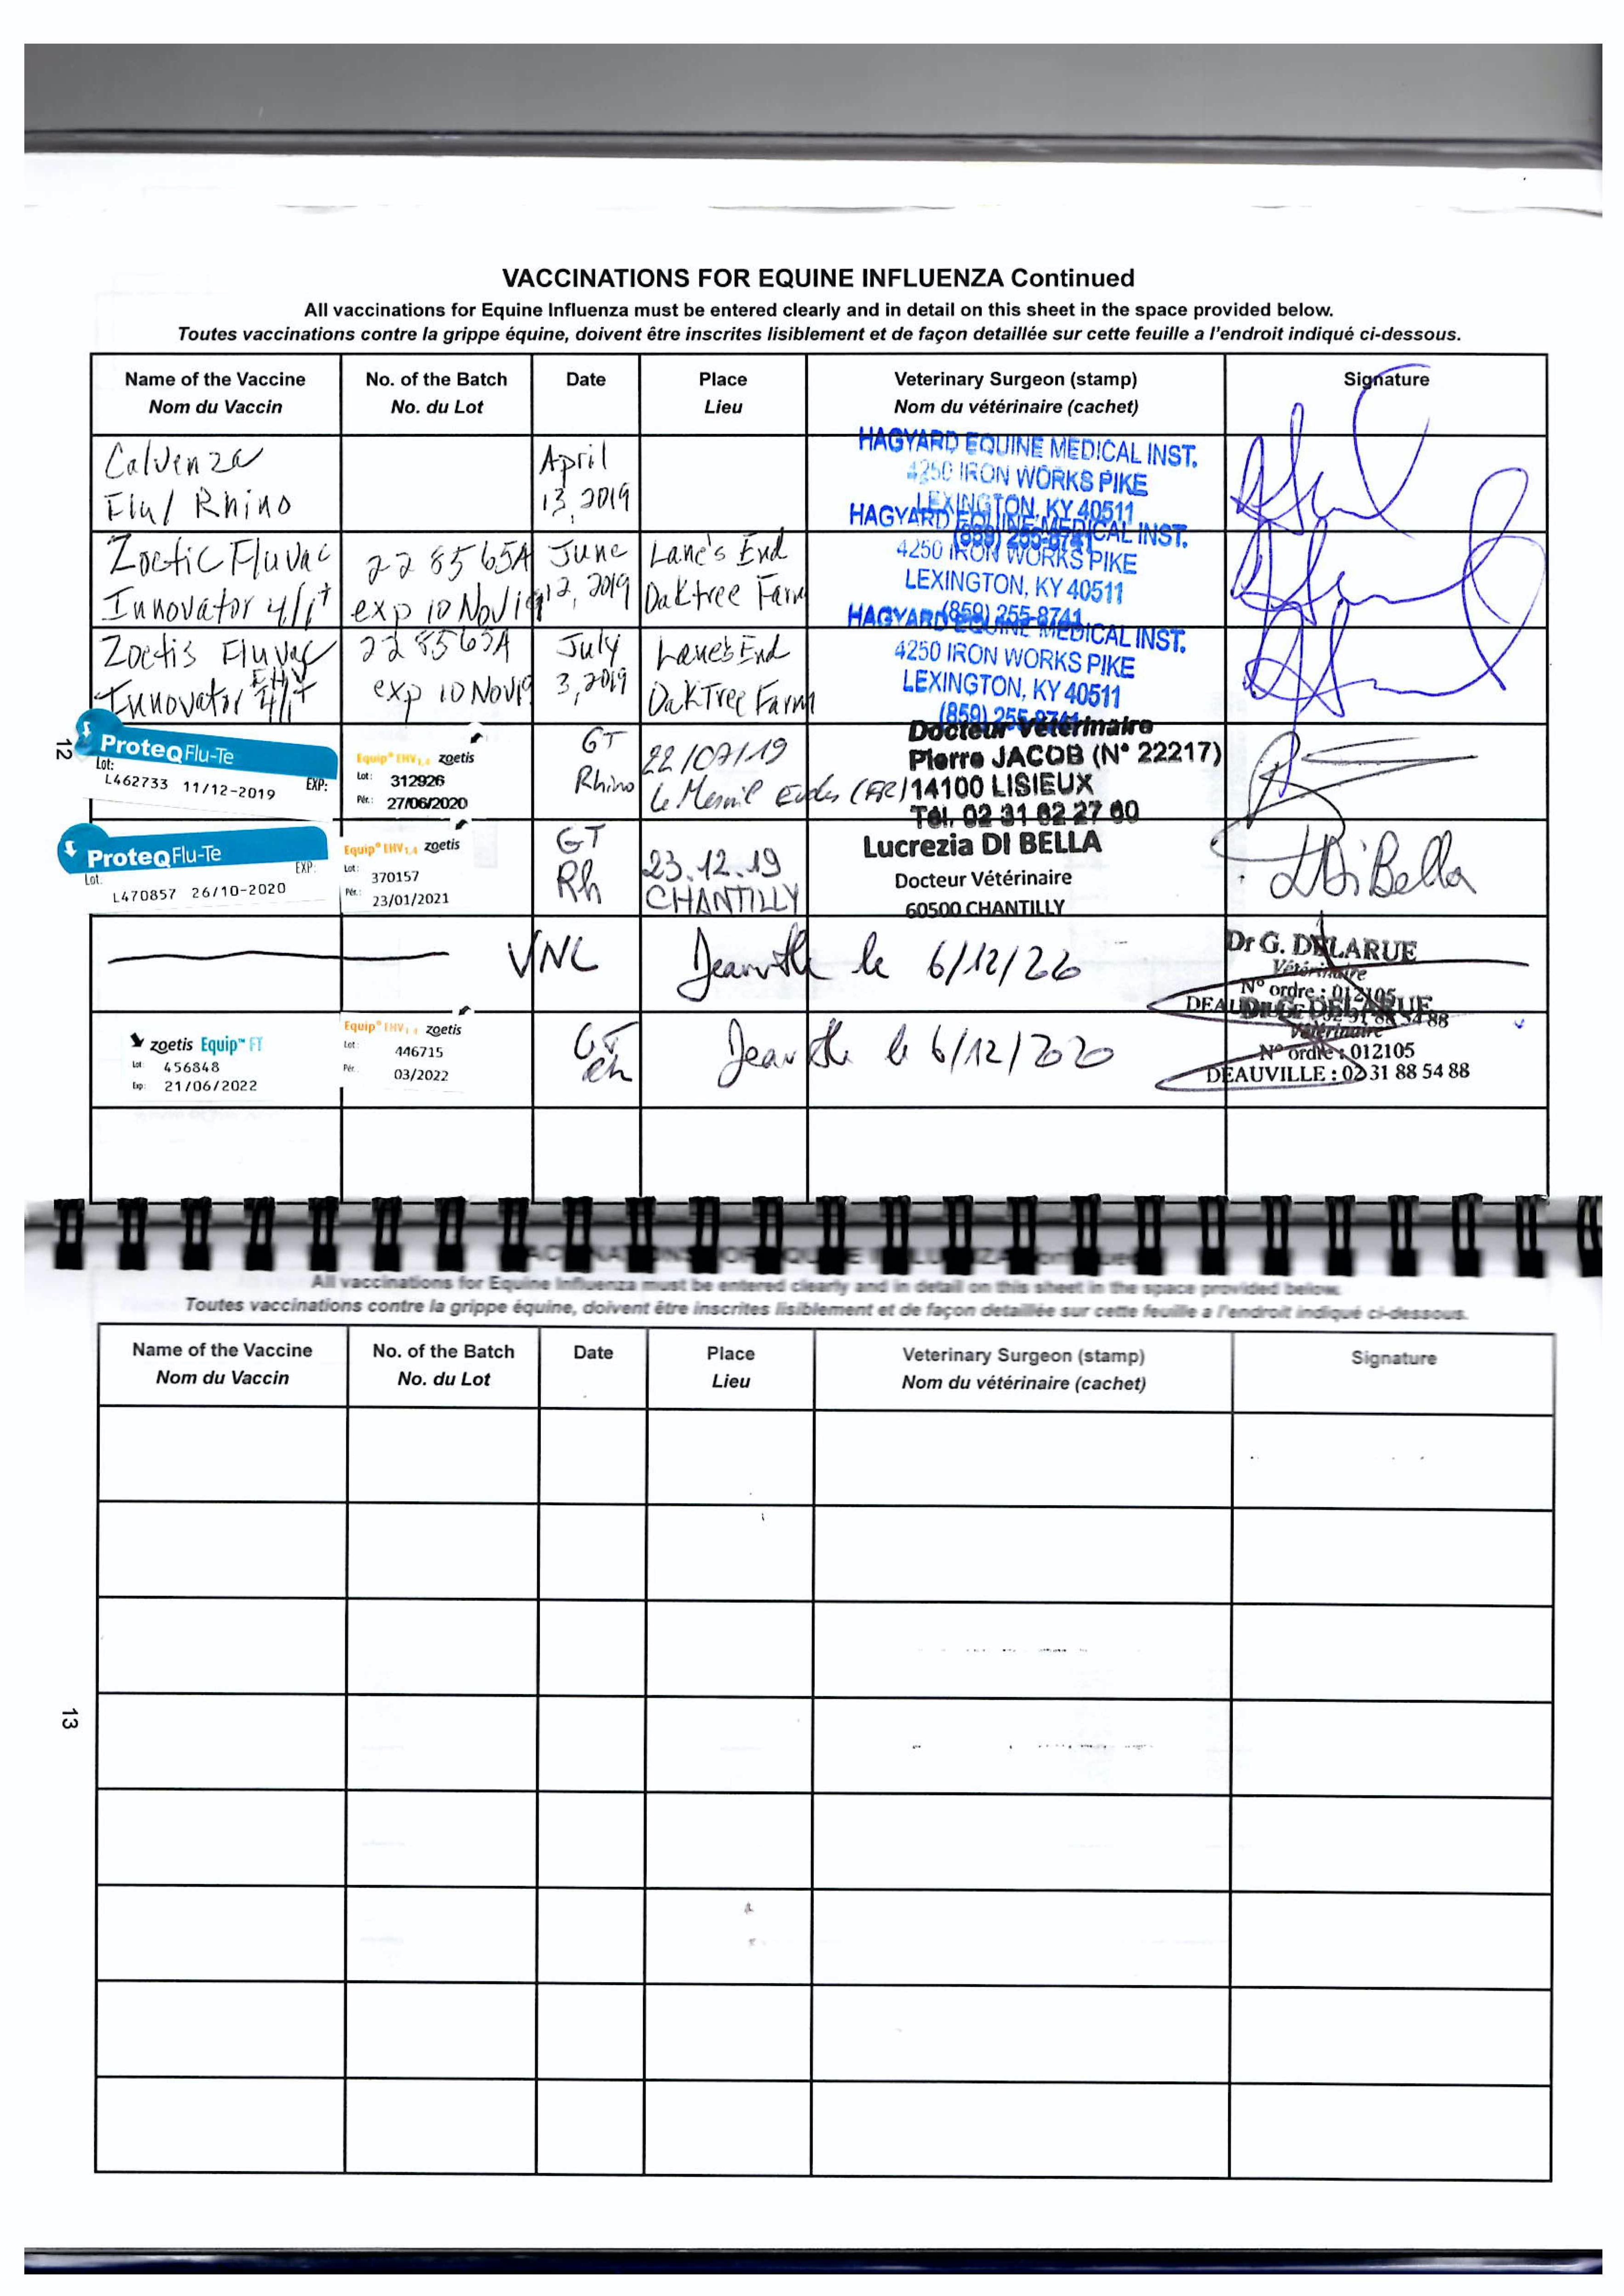 VACCINATIONS FOR EQUINE INFLUENZA Continued
All vaccinations for Equine Influenza must be entered clearly and in detail on this sheet in the space provided below.
Toutes vaccinations contre la grippe équine, doivent être inscrites lisiblement et de façon detaillée sur cette feuille a l'endroit indiqué ci-dessous.
Name of the Vaccine No. of the Batch Date Place Veterinary Surgeon (stamp) Signature
Nom du Vaccin No. du Lot Lieu Nom du vétérinaire (cachet)
Calvenza April HAGYARD EQUINE MEDICAL INST.
Flu/ Rhino 13, 2019 4250 IRON WORKS PIKE
LEXINGTON, KY 40511
(859) 255-8741
Zoetic Fluvac 228565A June Lane's End HAGYARD EQUINE MEDICAL INST.
Innovator 4/1+ exp 10 Nov19 12, 2019 Oaktree Farm 4250 IRON WORKS PIKE
LEXINGTON, KY 40511
(859) 255-8741
Zoetis Fluvac 228565A July Lane's End HAGYARD EQUINE MEDICAL INST.
EHV
Innovator 4/1+ exp 10 Nov19 3, 2019 OakTree Farm 4250 IRON WORKS PIKE
LEXINGTON, KY 40511
(859) 255-8741
12
ProteqFlu-Te Equip® EHV1,4 zoetis GT 22/07/19 Docteur Vétérinaire
Lot: EXP: Lot: 312926 Rhino Le Mesnil Eudes (FR) Pierre JACOB (N° 22217)
L462733 11/12-2019 Pér.: 27/06/2020 14100 LISIEUX
Tél. 02 31 62 27 60
ProteqFlu-Te Equip® EHV1,4 zoetis GT 23.12.19 Lucrezia DI BELLA
Lot: EXP: Lot: 370157 Rh CHANTILLY Docteur Vétérinaire LDiBella
L470857 26/10-2020 Pér.: 23/01/2021 60500 CHANTILLY
VNC le 6/12/20 Dr G. DELARUE
Vétérinaire
N° ordre : 012105
zoetis Equip™ FT Equip® EHV1,4 zoetis GT le 6/12/2020 Dr G. DELARUE
Lot: 456848 Lot: 446715 Vétérinaire
Exp: 21/06/2022 Pér. 03/2022 N° ordre : 012105
DEAUVILLE : 02 31 88 54 88
VACCINATIONS FOR EQUINE INFLUENZA Continued
All vaccinations for Equine Influenza must be entered clearly and in detail on this sheet in the space provided below.
Toutes vaccinations contre la grippe équine, doivent être inscrites lisiblement et de façon detaillée sur cette feuille a l'endroit indiqué ci-dessous.
Name of the Vaccine No. of the Batch Date Place Veterinary Surgeon (stamp) Signature
Nom du Vaccin No. du Lot Lieu Nom du vétérinaire (cachet)
13